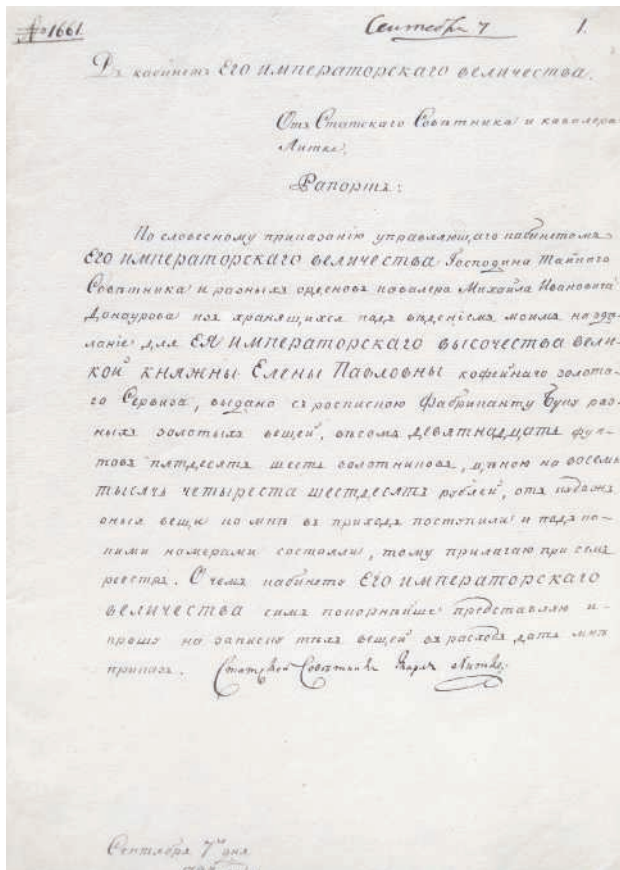 № 1661. Сентебря 7 1.
Въ кабинетъ Его императорскаго величества.
Отъ Статскаго Совѣтника и кавалера
Литке,
Рапортъ:
По словесному приказанію управляющаго кабинетомъ
Его императорскаго величества Господина тайнаго
Совѣтника и разныхъ орденовъ кавалера Михайла Ивановича
Донаурова изъ хранящихся подъ вѣденіемъ моимъ на здѣ-
ланіе для Ея императорскаго высочества вели-
кой княжны Елены Павловны кофейнаго золота-
го Сервиза, выдано съ роспискою фабриканту Буху раз-
ныхъ золотыхъ вещей, вѣсомъ девятнадцать фун-
товъ пятдесятъ шесть золотниковъ, цѣною на восемь
тысячь четыреста шестдесятъ рублей, отъ
оныя вещи ко мнѣ въ приходъ поступили и подъ ка-
кими номерами состояли, тому прилагаю при семъ
реестръ. О чемъ кабинету Его императорскаго
величества симъ покорнѣйше представляю и-
прошу на записку тѣхъ вещей въ расходъ дать мнѣ
приказъ. Статской Совѣтникъ Карлъ Литке.
Сентября 7го дня